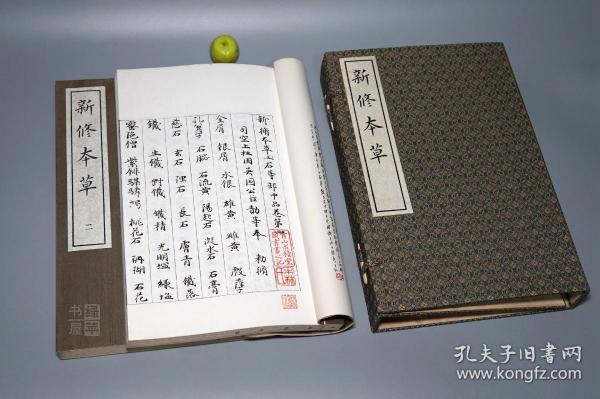 新修本草
二
新脩本草玉石等部中品卷第
司空上柱國英國公臣勣等奉 勅脩
金屑 銀屑 水銀 雄黃 雌黃 殷孽
孔公孽 石腦 石流黃 陽起石 凝水石 石膏
慈石 玄石 理石 長石 膚青 鐵落
鐵 生鐵 鋼鐵 鐵精 光明鹽 綠鹽
密陀僧 紫鉚騏驎竭 桃花石 珊瑚 石花
新修本草
书屋
孔夫子旧书网
www.kongfz.com